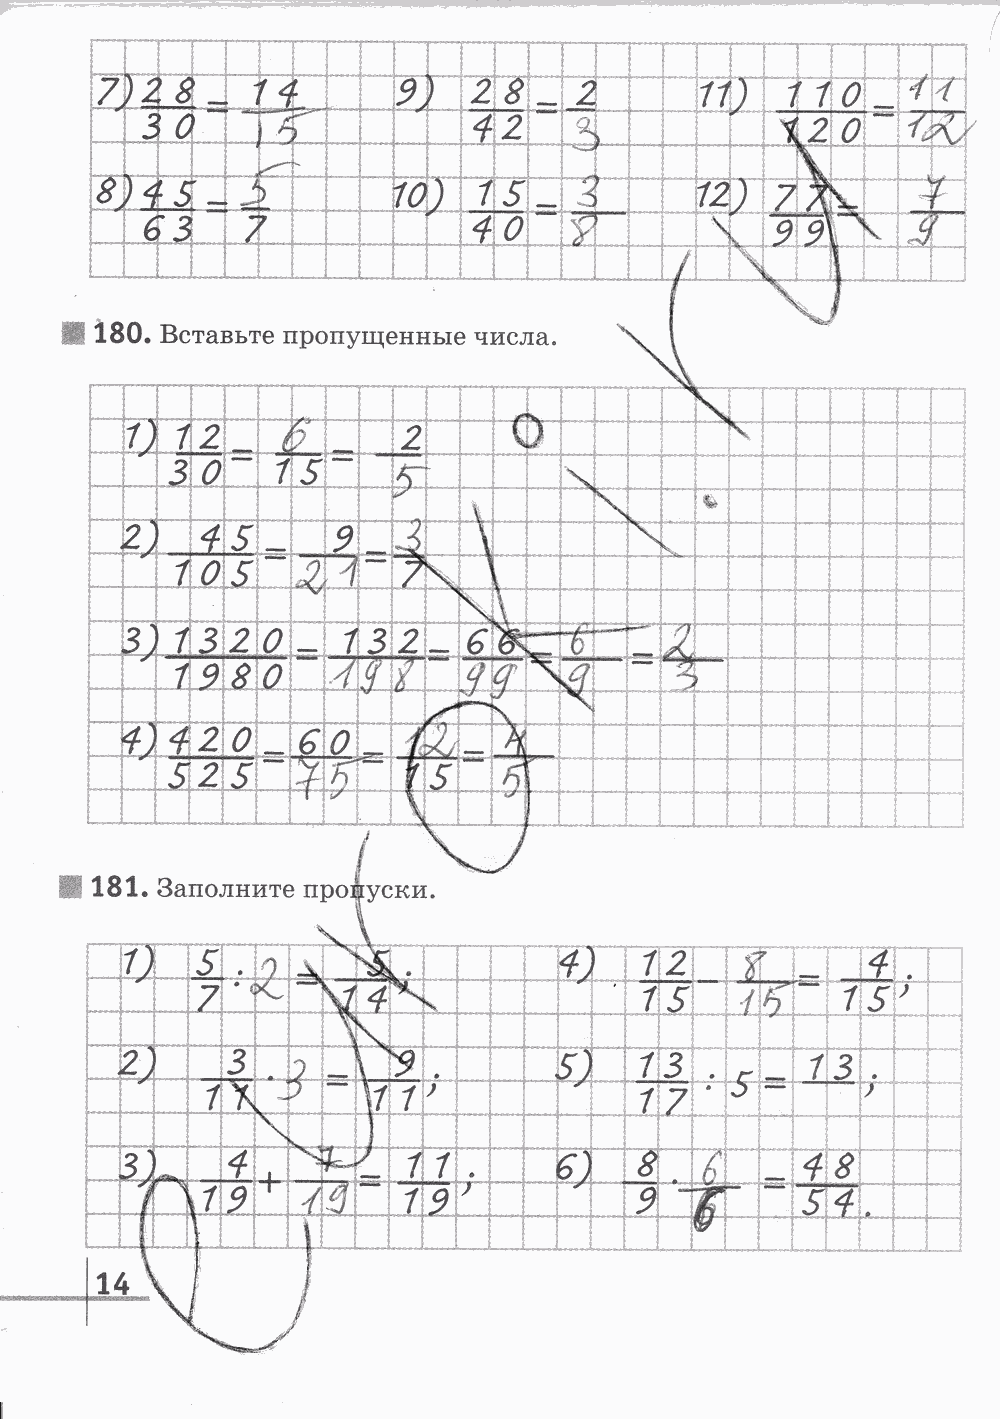 7) 28/30 = 14/15 9) 28/42 = 2/3 11) 110/120 = 11/12
8) 45/63 = 5/7 10) 15/40 = 3/8 12) 77/99 = 7/9
180. Вставьте пропущенные числа.
1) 12/30 = 6/15 = 2/5
2) 45/105 = 9/21 = 3/7
3) 1320/1980 = 132/198 = 66/99 = 6/9 = 2/3
4) 420/525 = 60/75 = 12/15 = 4/5
181. Заполните пропуски.
1) 5/7 : 2 = 5/14; 4) 12/15 − 8/15 = 4/15;
2) 3/11 · 3 = 9/11; 5) 13/17 : 5 = 13/ ;
3) 4/19 + 7/19 = 11/19; 6) 8/9 · 6/6 = 48/54.
14